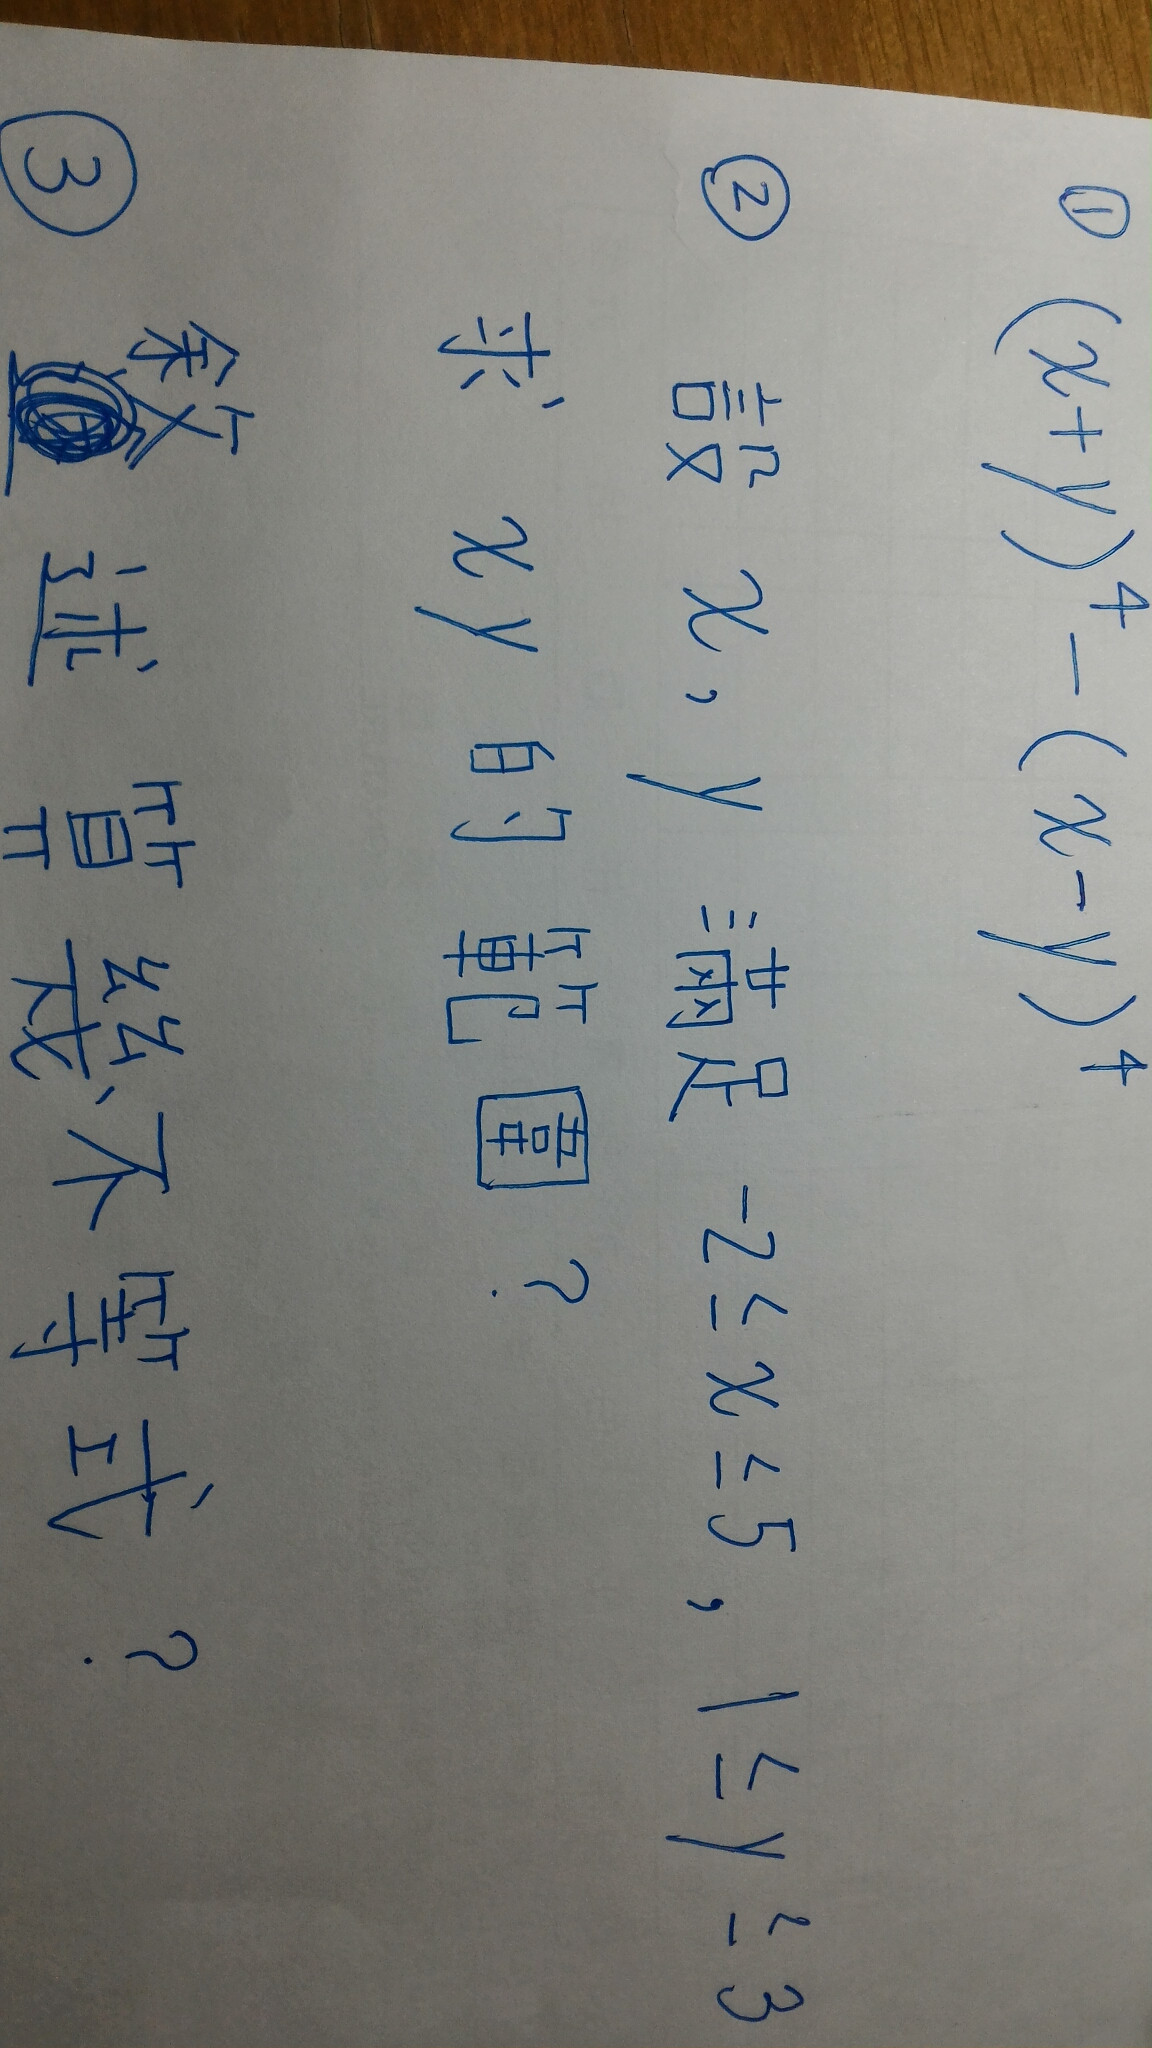 ① (x+y)⁴-(x-y)⁴
② 設 x,y 滿足 -2≤x≤5,1≤y≤3
求 xy 的範圍?
③ 敘述算幾不等式?